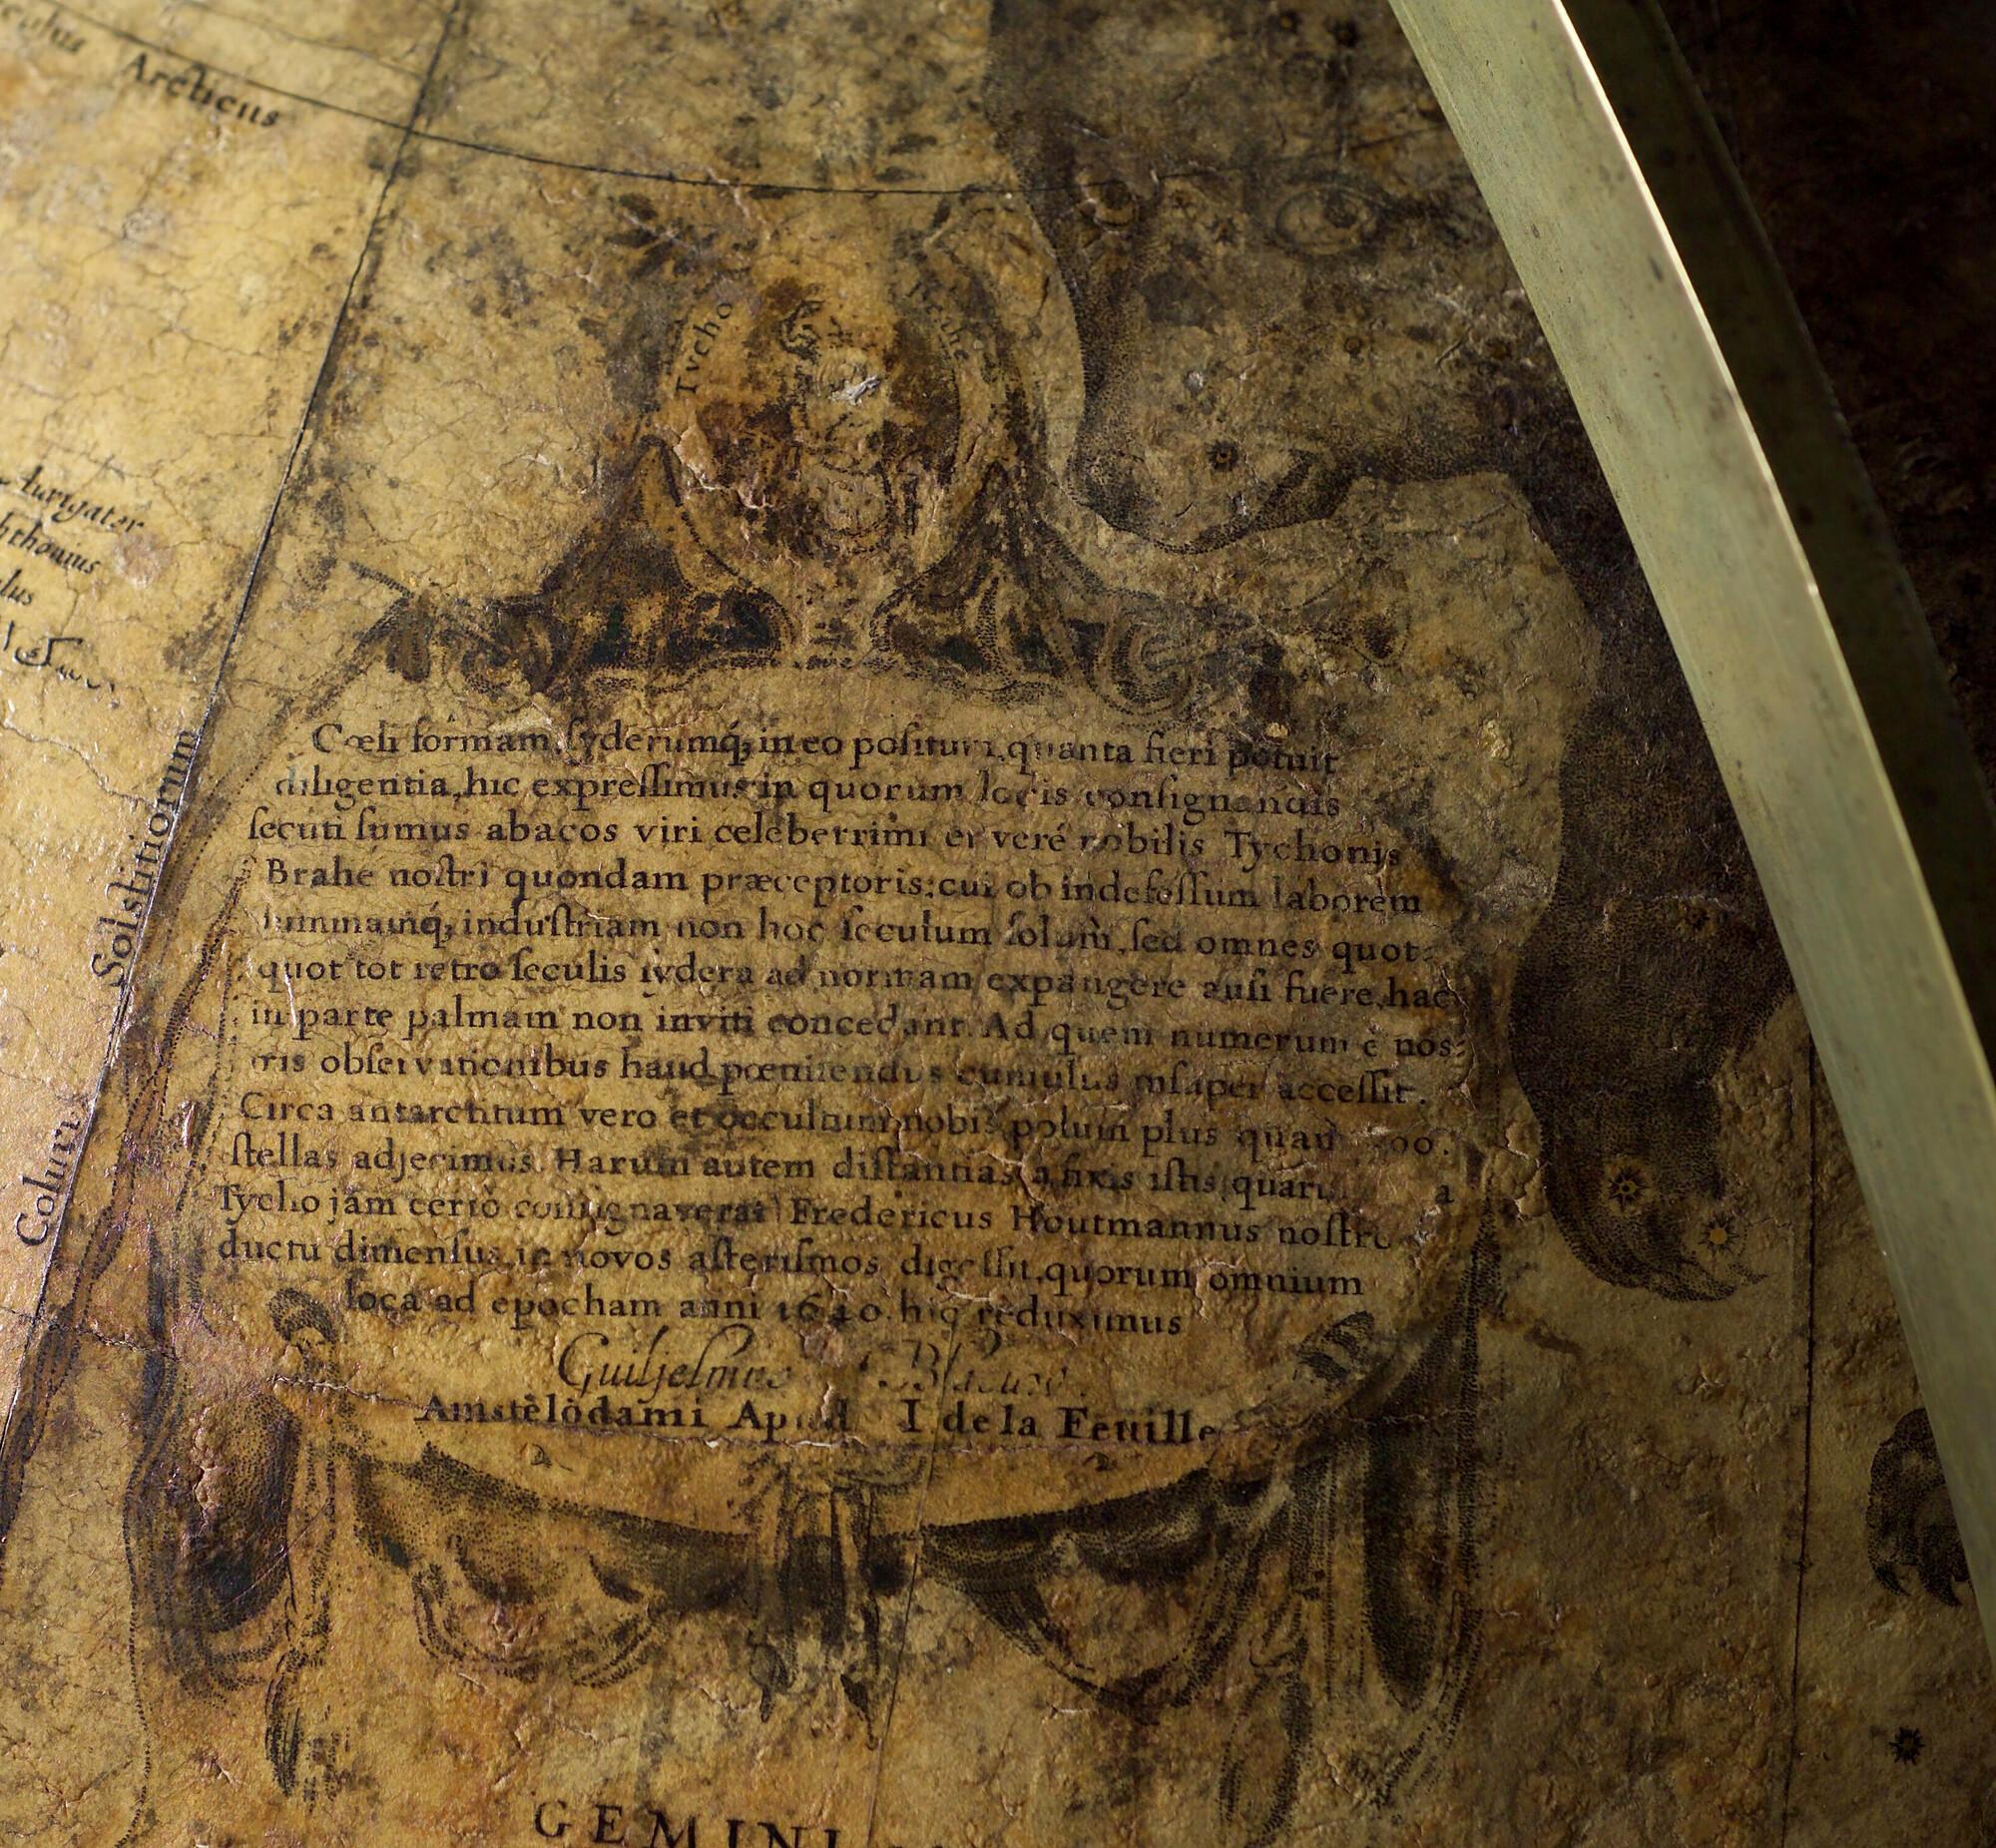 Arcticus
Tycho Brahe
Cœli formam, ſyderumq́; in eo poſituri, quanta fieri potuit
diligentia, hic expreſſimus in quorum locis conſignandis
ſecuti ſumus abacos viri celeberrimi et veré nobilis Tychonis
Brahe noſtri quondam præceptoris: cui ob indefeſſum laborem
ſummamq́; induſtriam non hoc ſeculum ſolum, ſed omnes quot-
quot tot retro ſeculis ſydera ad normam expangere auſi fuere, hac
in parte palmam non inviti concedant. Ad quem numerum è nos-
tris obſervationibus haud pœnitendus cumulus inſuper acceſſit.
Circa antarcticum vero et occultum nobis polum plus quam 300.
ſtellas adjecimus. Harum autem diſtantias a fixis iſtis, quar a
Tycho jam certò conſignaverat Fredericus Houtmannus noſtro
ductu dimenſus, in novos aſteriſmos digeſſit, quorum omnium
loca ad epocham anni 1640. hic reduximus
Guiljelmus Blaeuw.
Amstelodami Apud I de la Feuille
Colurus Solstitiorum
GEMINI